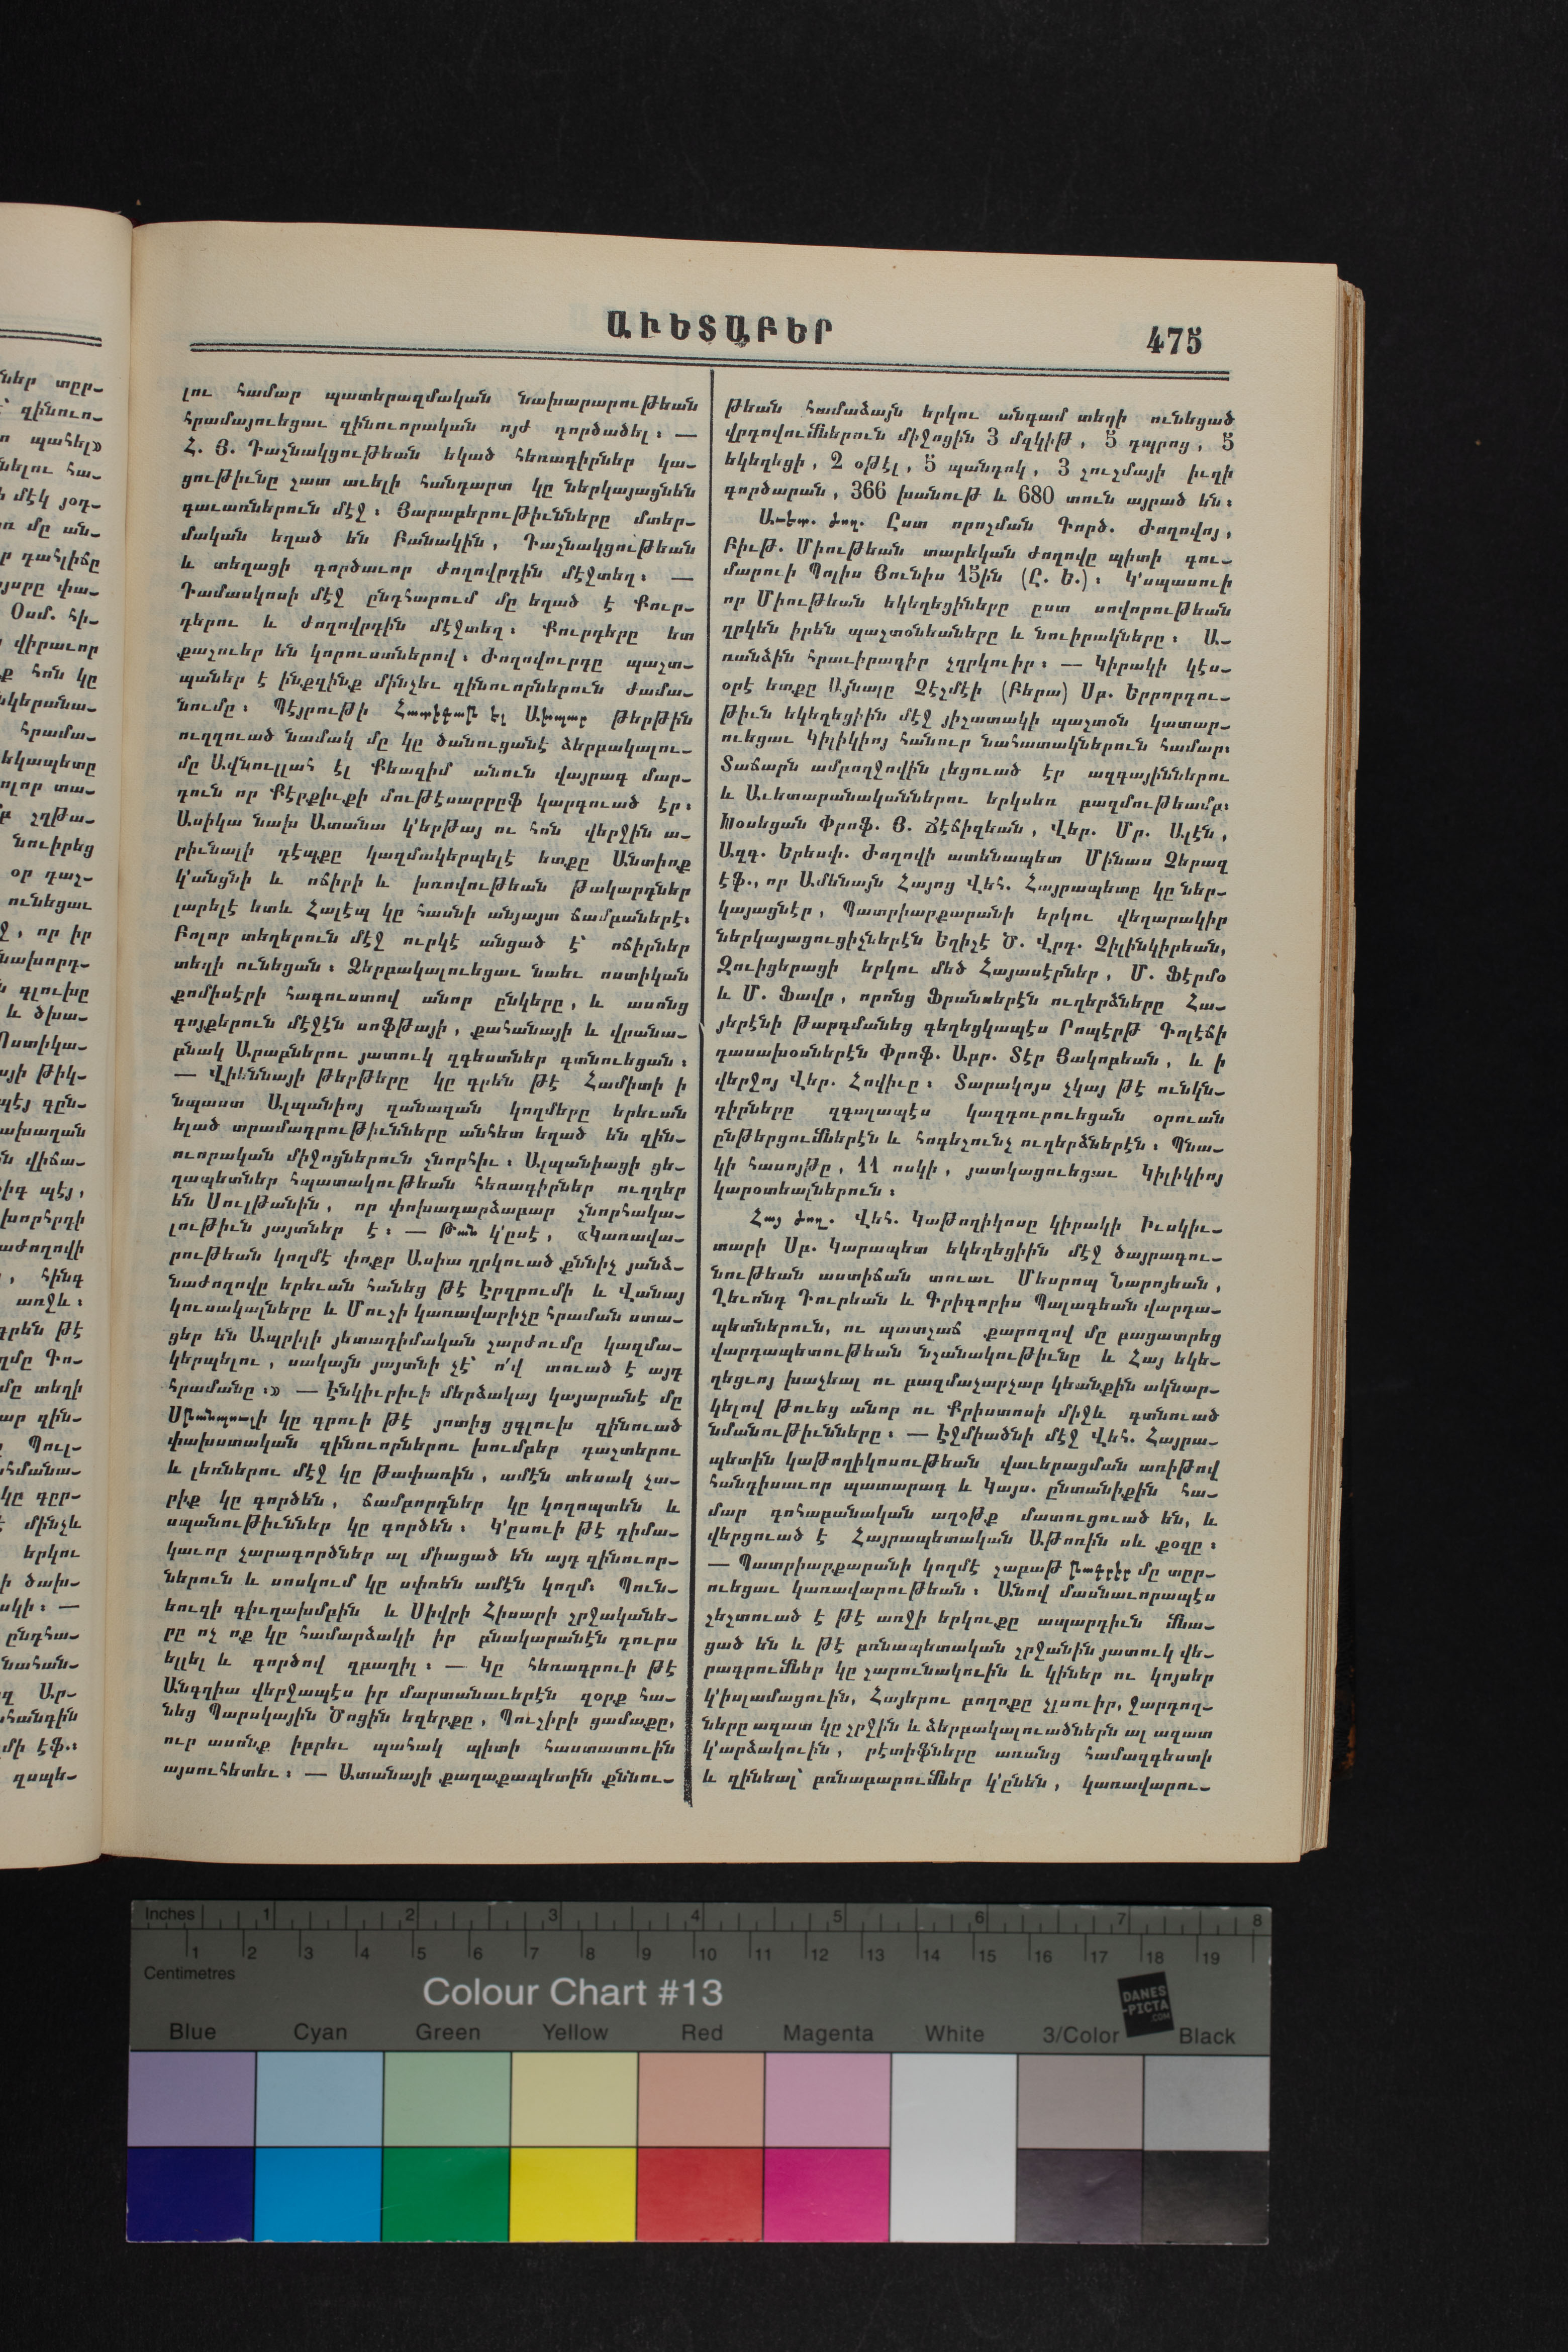 ԱՒԵՏԱԲԵՐ
475
լու համար պատերազմական նախարարութեան
հրամայուեցաւ զինուորական ոյժ գործածել։ —
Հ. Յ. Դաշնակցութեան եկած հեռագիրներ կա-
ցութիւնը շատ աւելի հանդարտ կը ներկայացնեն
գաւառներուն մէջ։ Յարաբերութիւնները մտեր-
մական եղած են Բանակին, Դաշնակցութեան
և տեղացի գործաւոր ժողովրդին մէջտեղ։ —
Դամասկոսի մէջ ընդհարում մը եղած է Քուր-
դերու և ժողովրդին մէջտեղ։ Քուրդերը ետ
քաշուեր են կորուստներով։ Ժողովուրդը պաշտ-
պաներ է ինքզինք մինչեւ զինուորներուն ժամա-
նումը։ Պէյրութի էլ թերթին
ուղղուած նամակ մը կը ծանուցանէ ձերբակալու-
մը Ավնուլլահ էլ Քեազիմ անուն վայրագ մար-
դուն որ Քէրքիւքի մութէսարրըֆ կարգուած էր։
Ասիկա նախ Ատանա կ'երթայ ու հոն վերջին ա-
րիւնալի դէպքը կազմակերպելէ ետքը Անտիոք
կ'անցնի և ոճիրի և խռովութեան թակարդներ
լարելէ ետև Հալէպ կը հասնի անյայտ ճամբաներէ։
Բոլոր տեղերուն մէջ ուրկէ անցած է՝ ոճիրներ
տեղի ունեցան։ Ձերբակալուեցաւ նաեւ ոստիկան
քոմիսէրի հագուստով անոր ընկերը, և ասոնց
գոյքերուն մէջէն սոֆթայի, քահանայի և վրանա-
բնակ Արաբներու յատուկ զգեստներ գտնուեցան։
— Վիեննայի թերթերը կը գրեն թէ Համիտի ի
նպաստ Ալպանիոյ զանազան կողմերը երեւան
ելած տրամադրութիւնները անհետ եղած են զին-
ուորական միջոցներուն շնորհիւ։ Ալպանիացի ցե-
ղապետներ հպատակութեան հեռագիրներ ուղղեր
են Սուլթանին, որ փոխադարձաբար շնորհակա-
լութիւն յայտներ է։ — Թան կ'ըսէ, «Կառավա-
րութեան կողմէ փոքր Ասիա ղրկուած քննիչ յանձ-
նաժողովը երեւան հանեց թէ Էրզրումի և Վանայ
կուսակալները և Մուշի կառավարիչը հրաման ստա-
ցեր են Ապրիլի յետադիմական շարժումը կազմա-
կերպելու, սակայն յայտնի չէ՝ ո՛վ տուած է այդ
հրամանը։» — Էնկիւրիւի մերձակայ կայարանէ մը
Սթանպուլի կը գրուի թէ յոտից ցգլուխ զինուած
փախստական զինուորներու խումբեր դաշտերու
և լեռներու մէջ կը թափառին, ամէն տեսակ չա-
րիք կը գործեն, ճամբորդներ կը կողոպտեն և
սպանութիւններ կը գործեն։ Կ'ըսուի թէ դիմա-
կաւոր չարագործներ ալ միացած են այդ զինուոր-
ներուն և սոսկում կը սփռեն ամէն կողմ։ Պուն-
եուզի գիւղախմբին և Սիվրի Հիսարի շրջականե-
րը ոչ ոք կը համարձակի իր բնակարանէն դուրս
ելլել և գործով զբաղիլ։ — Կը հեռագրուի թէ
Անգղիա վերջապէս իր մարտանաւերէն զօրք հա-
նեց Պարսկային Ծոցին եզերքը, Պուշիրի ցամաքը,
ուր ասոնք իբրեւ պահակ պիտի հաստատուին
այսուհետեւ։ — Ատանայի քաղաքապետին քննու-
թեան համաձայն երկու անգամ տեղի ունեցած
վրդովումներուն միջոցին 3 մզկիթ, 5 դպրոց, 5
եկեղեցի, 2 օթէլ, 5 պանդոկ, 3 շուշմայի իւղի
գործարան, 366 խանութ և 680 տուն այրած են։
Աւետ. ժող. Ըստ որոշման Գործ. Ժողովոյ,
Բիւթ. Միութեան տարեկան ժողովը պիտի գու-
մարուի Պոլիս Յունիս 15ին (Ը. Ե.)։ Կ'սպասուի
որ Միութեան եկեղեցիները ըստ սովորութեան
ղրկեն իրեն պաշտօնեաները և նուիրակները։ Ա-
ռանձին հրաւիրագիր չղրկուիր։ — Կիրակի կէս-
օրէ ետքը Այնալը Չէշմէի (Բերա) Սբ. Երրորդու-
թիւն եկեղեցիին մէջ յիշատակի պաշտօն կատար-
ուեցաւ Կիլիկիոյ հանուր նահատակներուն համար։
Տաճարն ամբողջովին լեցուած էր ազգայիններու
և Աւետարանականներու երկսեռ բազմութեամբ։
Խօսեցան Փրոֆ. Յ. Ճէճիզեան, Վեր. Մր. Ալէն,
Ազգ. Երեսփ. Ժողովի ատենապետ Մինաս Չերազ
էֆ., որ Ամենայն Հայոց Վեհ. Հայրապետը կը ներ-
կայացնէր, Պատրիարքարանի երկու վեղարակիր
ներկայացուցիչներէն Եղիշէ Ծ. Վրդ. Չիլինկիրեան,
Զուիցերացի երկու մեծ Հայասէրներ, Մ. Ֆէրմօ
և Մ. Ֆավր, որոնց Ֆրանսերէն ուղերձները Հա-
յերէնի թարգմանեց գեղեցկապէս Րոպէրթ Գոլէճի
դասախօսներէն Փրոֆ. Աբր. Տէր Յակոբեան, և ի
վերջոյ Վեր. Հովիւը։ Տարակոյս չկայ թէ ունկն-
դիրները զգալապէս կազդուրուեցան օրուան
ընթերցումներէն և հոգեշունչ ուղերձներէն։ Պնա-
կի հասոյթը, 11 ոսկի, յատկացուեցաւ Կիլիկիոյ
կարօտեալներուն։
Հայ ժող. Վեհ. Կաթողիկոսը կիրակի Իւսկիւ-
տարի Սբ. Կարապետ եկեղեցիին մէջ ծայրագու-
նութեան աստիճան տուաւ Մեսրոպ Նարոյեան,
Ղեւոնդ Դուրեան և Գրիգորիս Պալագեան վարդա-
պետներուն, ու պատշաճ քարոզով մը բացատրեց
վարդապետութեան նշանակութիւնը և Հայ եկե-
ղեցւոյ խաչեալ ու բազմաչարչար կեանքին ակնար-
կելով թուեց անոր ու Քրիստոսի միջև գտնուած
նմանութիւնները։ — Էջմիածնի մէջ Վեհ. Հայրա-
պետին կաթողիկոսութեան վաւերացման առիթով
հանդիսաւոր պատարագ և Կայս. ընտանիքին հա-
մար գոհաբանական աղօթք մատուցուած են, և
վերցուած է Հայրապետական Աթոռին սև քօղը։
— Պատրիարքարանի կողմէ շաբաթ թագրիր մը տըր-
ուեցաւ կառավարութեան։ Անով մասնաւորապէս
շեշտուած է թէ առջի երկուքը ապարդիւն մնա-
ցած են և թէ բռնապետական շրջանին յատուկ վե-
րագրումներ կը շարունակուին և կիներ ու կոյսեր
կ'իսլամացուին, Հայերու բողոքը չլսուիր, ջարդող-
ները ազատ կը շրջին և ձերբակալուածներն ալ ազատ
կ'արձակուին, րէտիֆները առանց համազգեստի
և զինեալ՝ բռնաբարումներ կ'ընեն, կառավարու-
Inches 1 2 3 4 5 6 7 8
1 2 3 4 5 6 7 8 9 10 11 12 13 14 15 16 17 18 19
Centimetres
Colour Chart #13
DANES
-PICTA
.COM
Blue Cyan Green Yellow Red Magenta White 3/Color Black